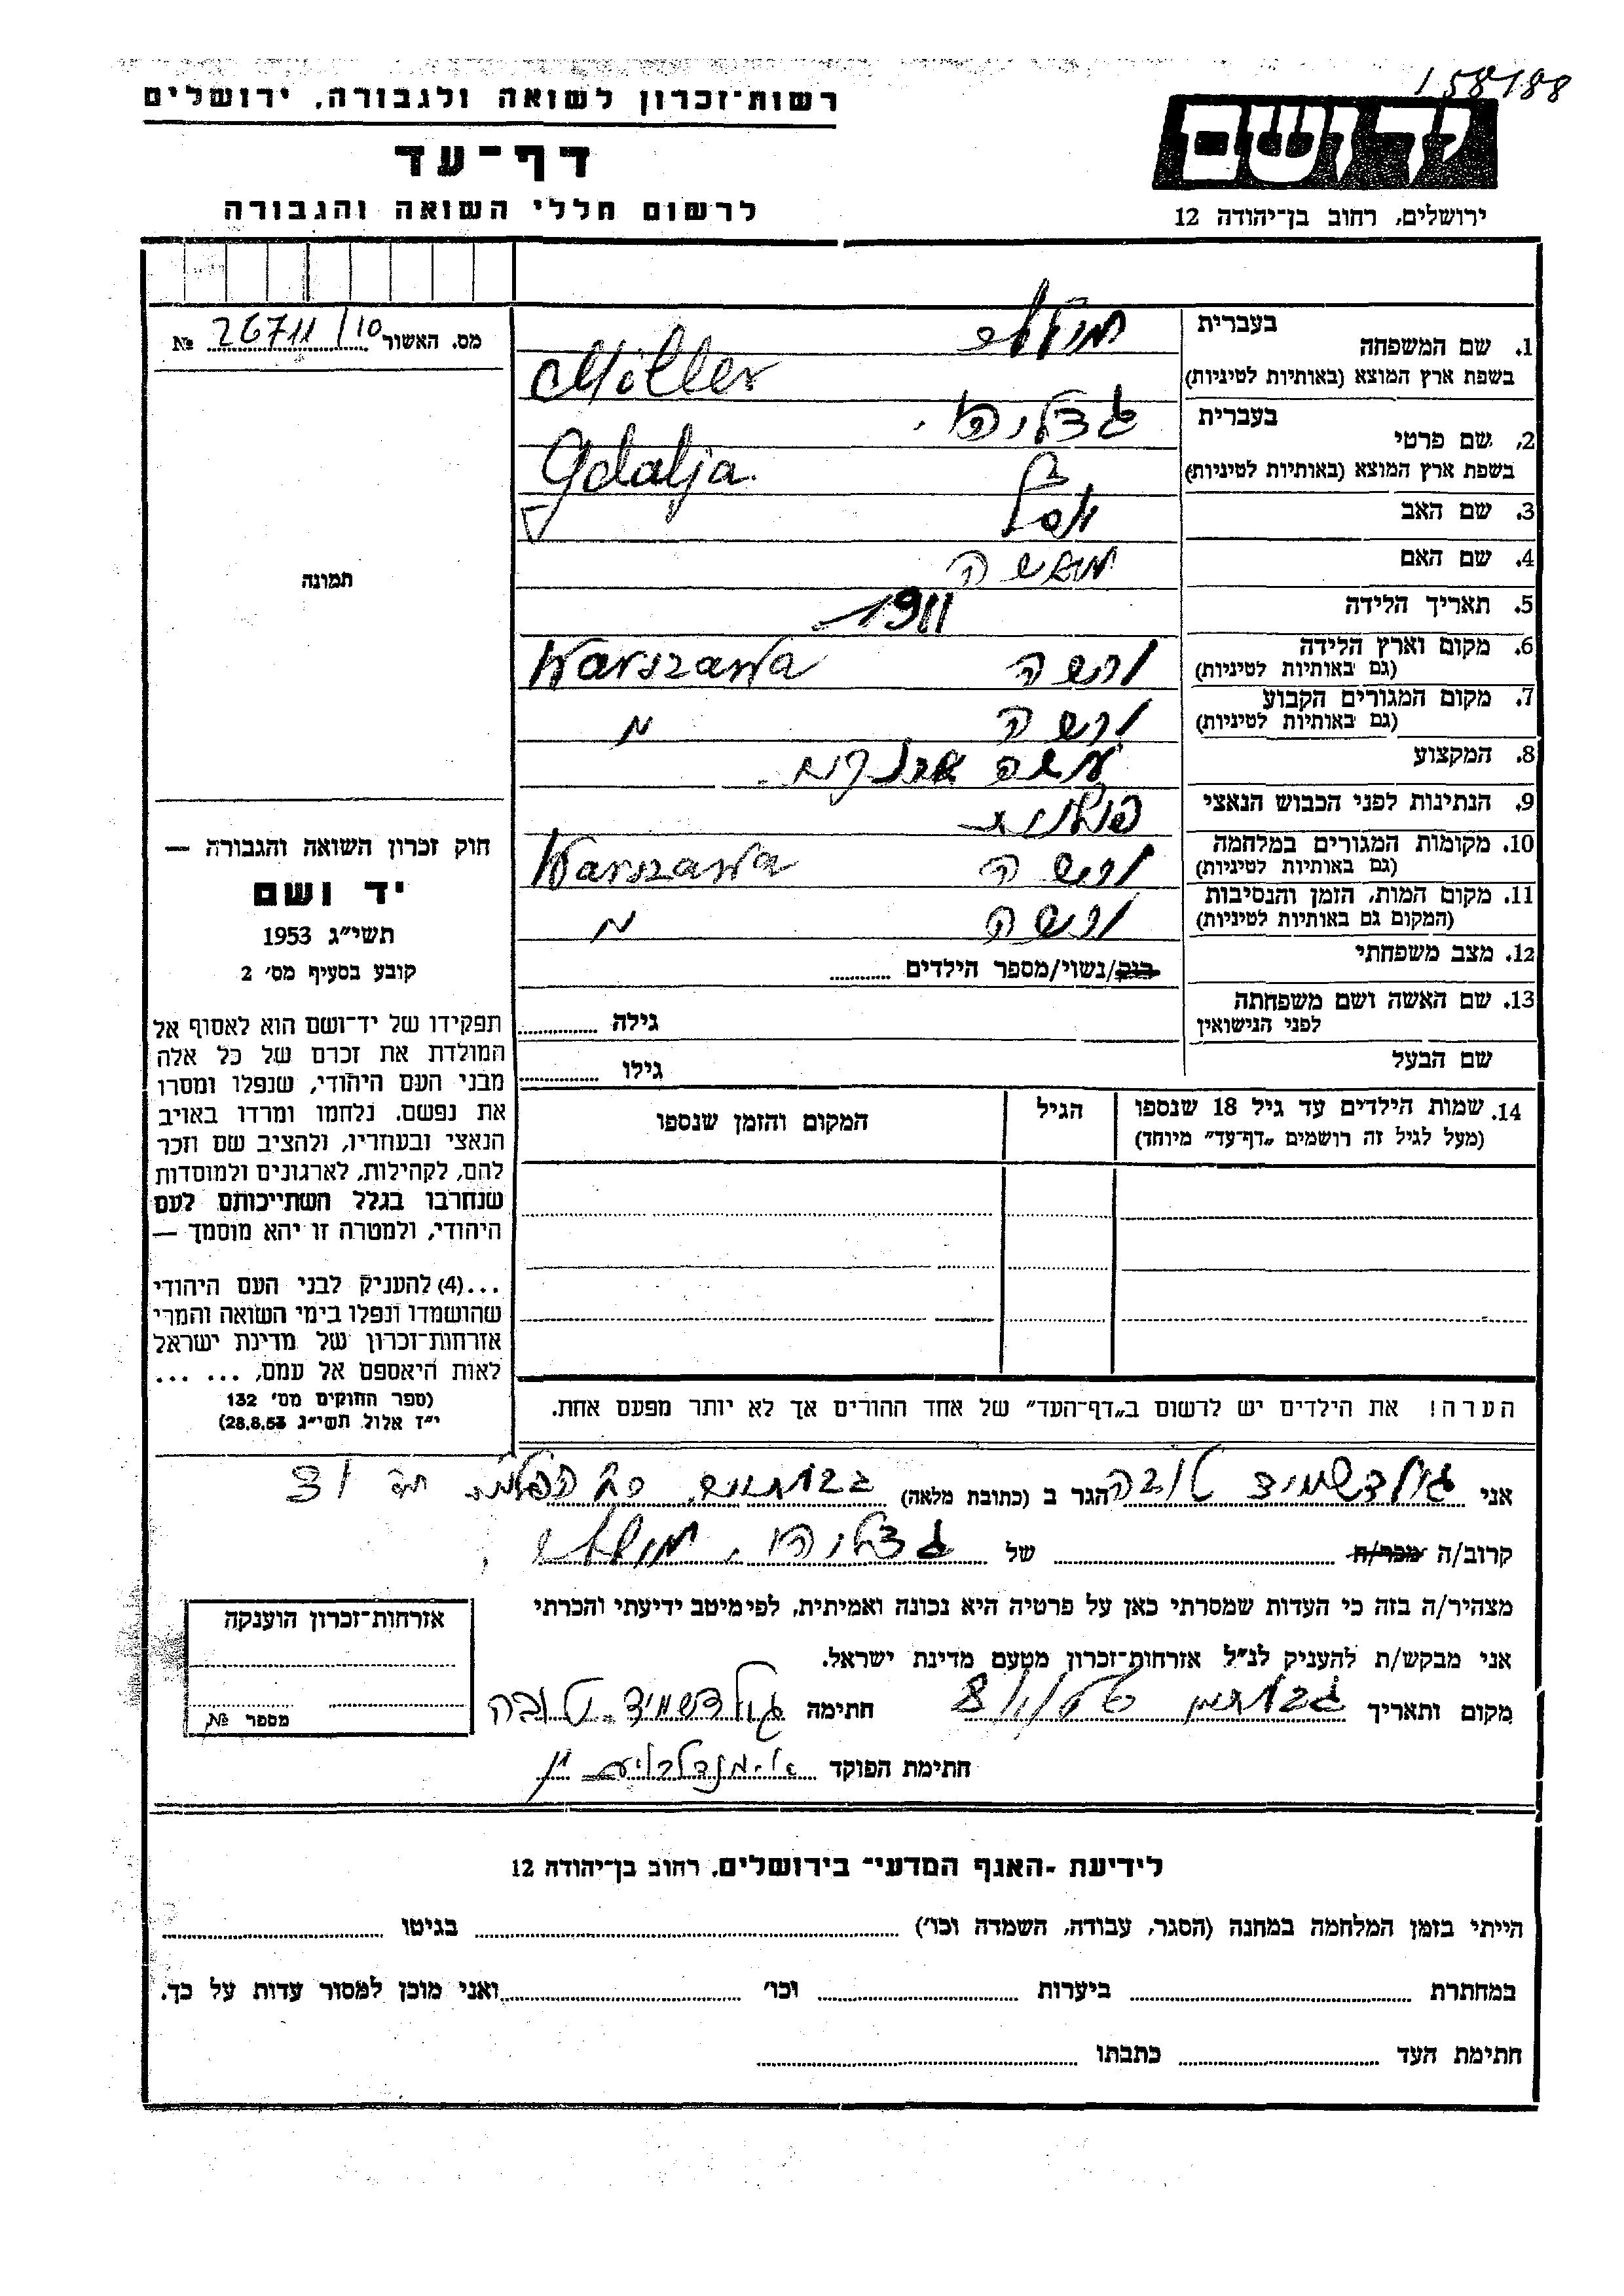 158188
רשות־זכרון לשואה ולגבורה, ירושלים
דף־עד
לרשום חללי השואה והגבורה
יד ושם
ירושלים, רחוב בן־יהודה 12
מס. האשור 26711/10 №
תמונה
בעברית
1. שם המשפחה
בשפת ארץ המוצא (באותיות לטיניות) Möller
בעברית גדליהו
2. שם פרטי
בשפת ארץ המוצא (באותיות לטיניות) Gdalja
3. שם האב
4. שם האם
5. תאריך הלידה 1911
6. מקום וארץ הלידה ורשה Warszawa
(גם באותיות לטיניות)
7. מקום המגורים הקבוע ורשה
(גם באותיות לטיניות)
8. המקצוע עושה ארנקים
9. הנתינות לפני הכבוש הנאצי פולנית
10. מקומות המגורים במלחמה ורשה Warszawa
(גם באותיות לטיניות)
11. מקום המות, הזמן והנסיבות ורשה
(המקום גם באותיות לטיניות)
12. מצב משפחתי רווק/נשוי/מספר הילדים
13. שם האשה ושם משפחתה גילה
לפני הנישואין
שם הבעל גילו
14. שמות הילדים עד גיל 18 שנספו הגיל המקום והזמן שנספו
(מעל לגיל זה רושמים „דף־עד" מיוחד)
הערה! את הילדים יש לרשום ב„דף־העד" של אחד ההורים אך לא יותר מפעם אחת.
חוק זכרון השואה והגבורה —
יד ושם
תשי"ג 1953
קובע בסעיף מס' 2
תפקידו של יד־ושם הוא לאסוף אל
המולדת את זכרם של כל אלה
מבני העם היהודי, שנפלו ומסרו
את נפשם, נלחמו ומרדו באויב
הנאצי ובעוזריו, ולהציב שם וזכר
להם, לקהילות, לארגונים ולמוסדות
שנחרבו בגלל השתייכותם לעם
היהודי, ולמטרה זו יהא מוסמך —
...(4) להעניק לבני העם היהודי
שהושמדו ונפלו בימי השואה והמרי
אזרחות־זכרון של מדינת ישראל
לאות היאספם אל עמם, ... ...
(ספר החוקים מס' 132
י"ז אלול תשי"ג 28.8.53)
אני גולדשמיד טובה הגר ב (כתובת מלאה) גבעתיים,
קרוב/ה מכר/ה של גדליהו
מצהיר/ה בזה כי העדות שמסרתי כאן על פרטיה היא נכונה ואמיתית, לפי מיטב ידיעתי והכרתי
אני מבקש/ת להעניק לנ"ל אזרחות־זכרון מטעם מדינת ישראל.
מקום ותאריך גבעתיים חתימה גולדשמיד טובה
חתימת הפוקד
אזרחות־זכרון הוענקה
מספר №
לידיעת ־האגף המדעי־ בירושלים, רחוב בן־יהודה 12
הייתי בזמן המלחמה במחנה (הסגר, עבודה, השמדה וכו') בגיטו
במחתרת ביערות וכו' ואני מוכן למסור עדות על כך.
חתימת העד כתבתו